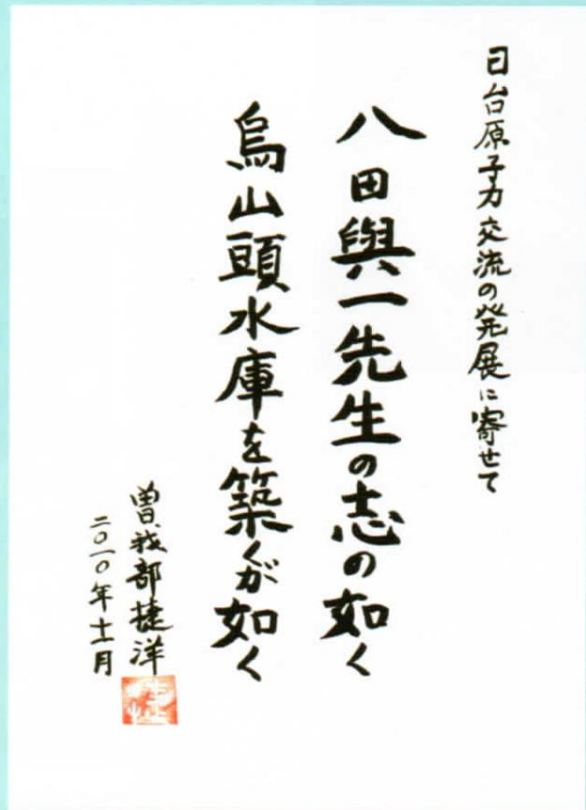 日台原子力交流の発展に寄せて
八田與一先生の志の如く
烏山頭水庫を築くが如く
曽我部捷洋
二〇一〇年十一月